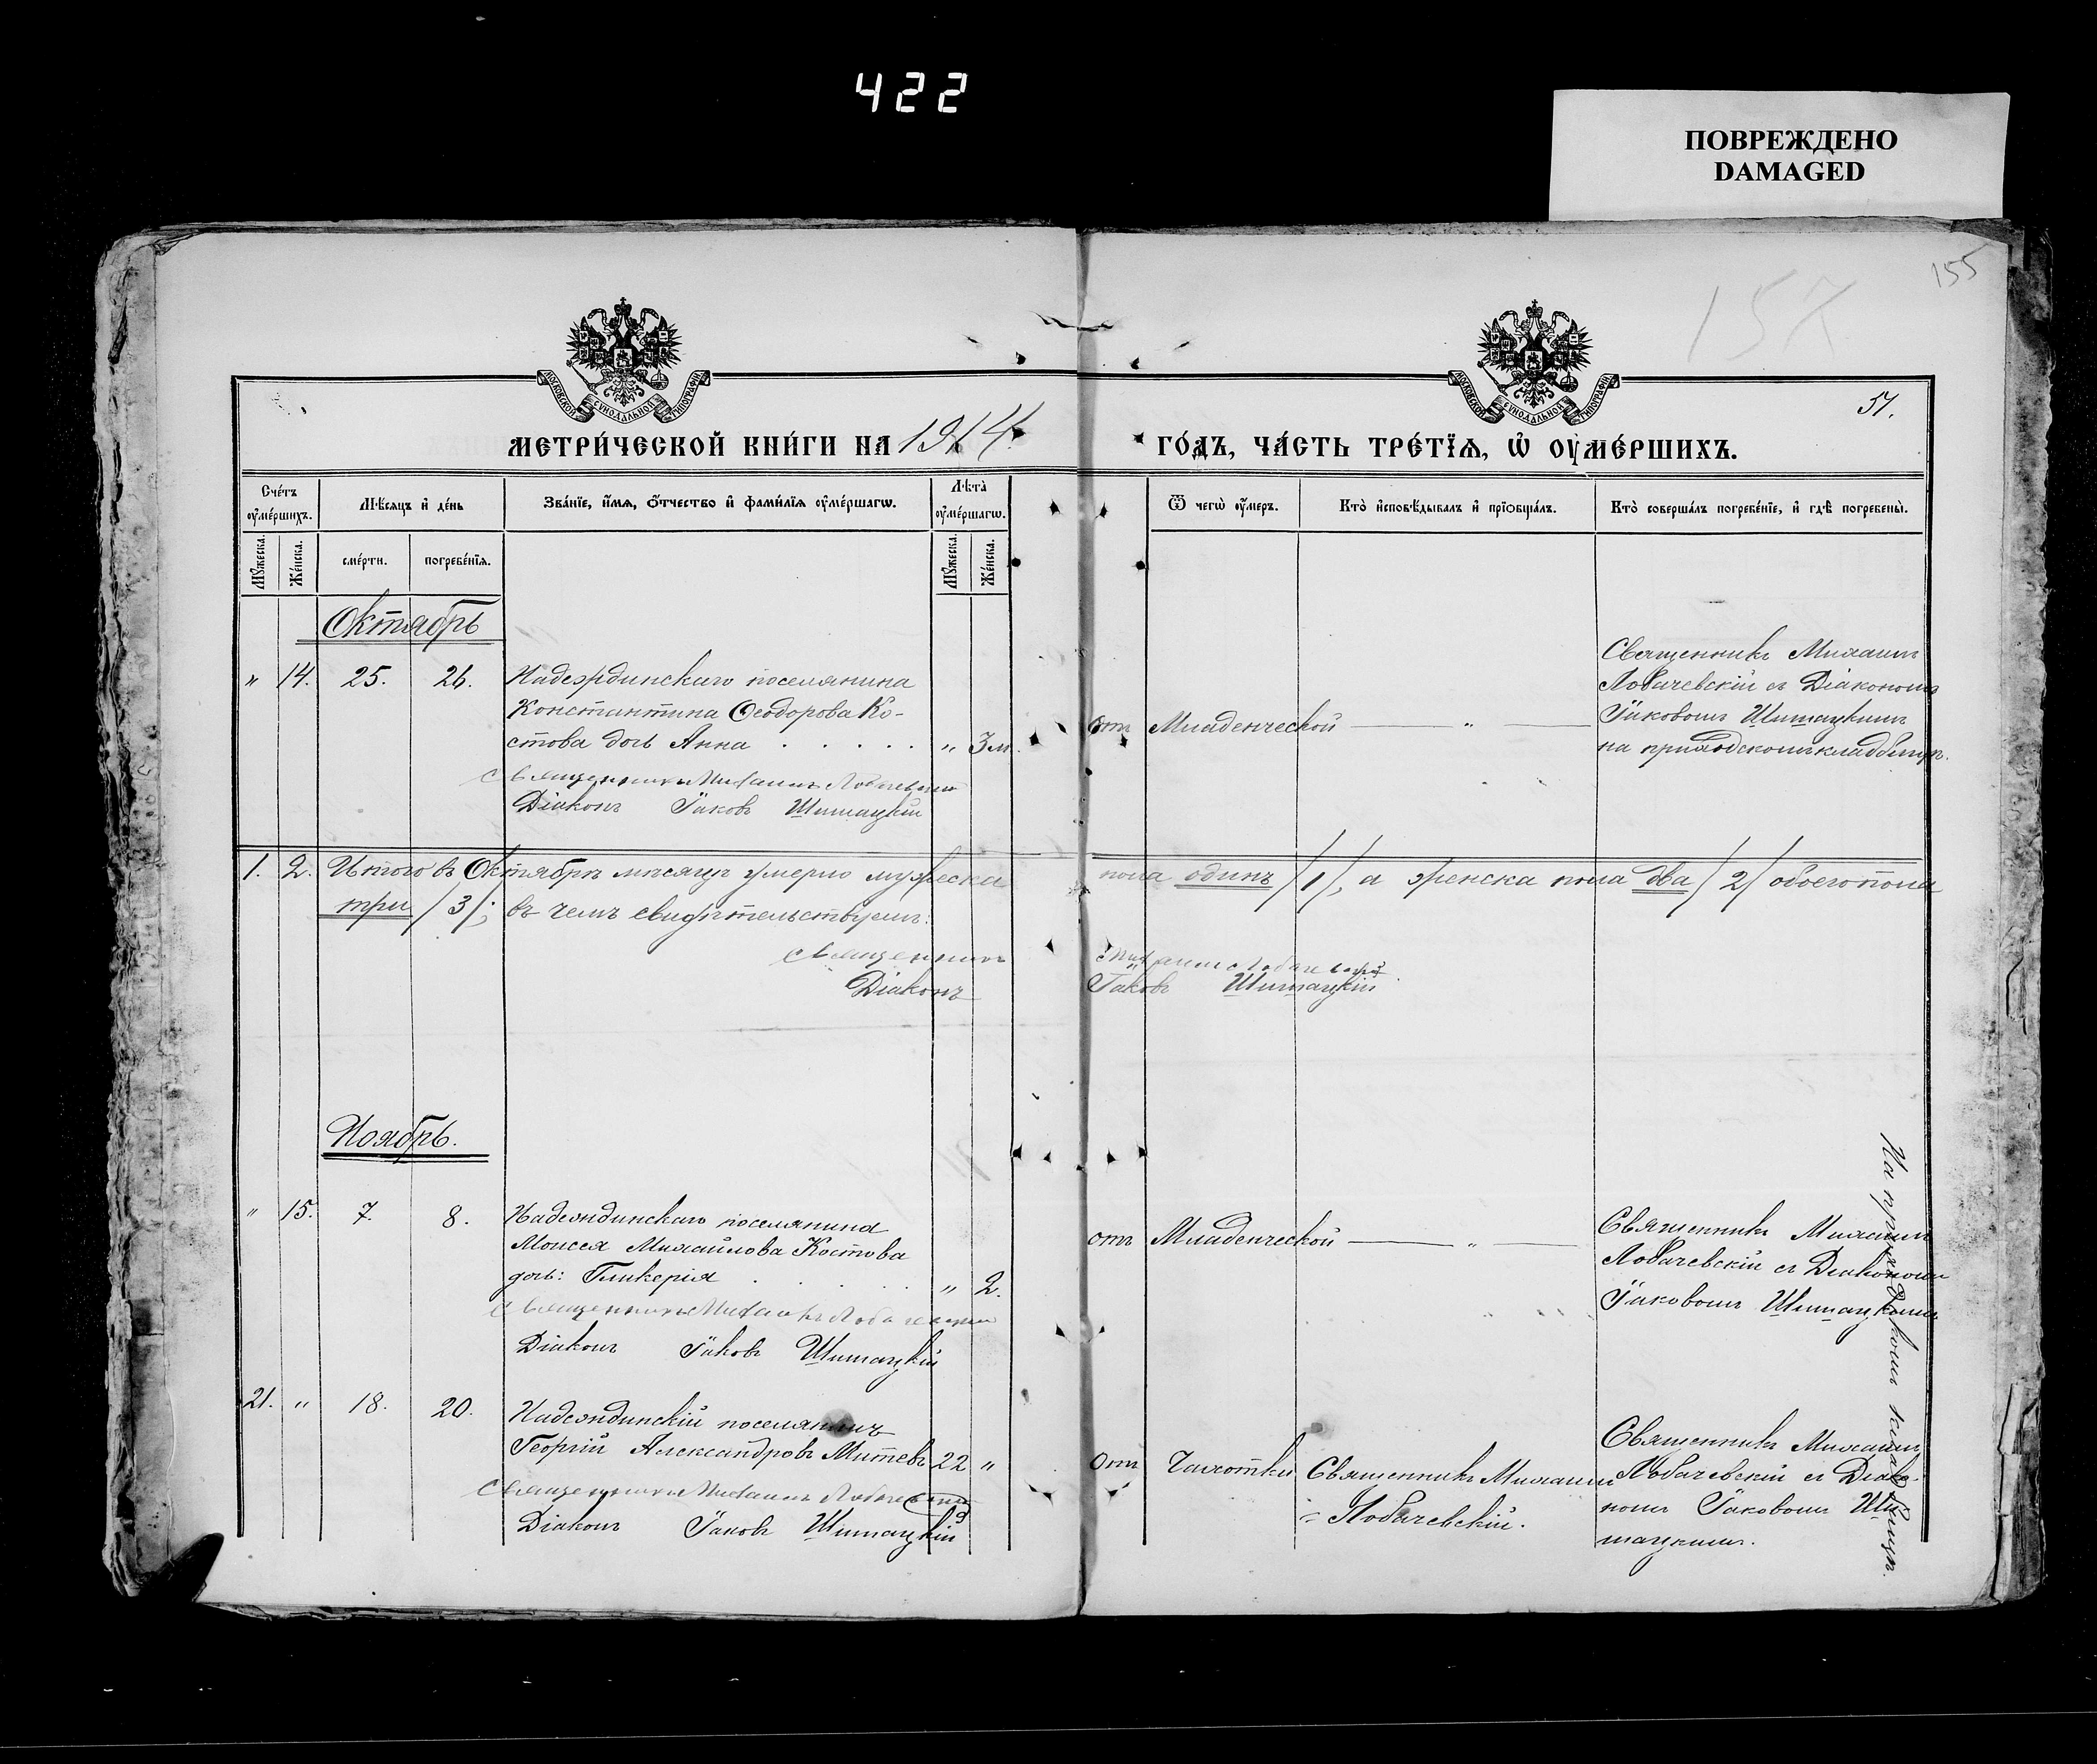 422
ПОВРЕЖДЕНО
DAMAGED
155
157
51.
МОСКОВСКОЙ СѴНОДАЛЬНОЙ ТИПОГРАФІИ
МОСКОВСКОЙ СѴНОДАЛЬНОЙ ТИПОГРАФІИ
МЕТРИ́ЧЕСКОЙ КНИ́ГИ НА 1914.
ГО́ДЪ, ЧА́СТЬ ТРЕ́ТЇѦ, Ѡ҆ ОУ҆МЕ́РШИХЪ.
Сче́тъ оу҆ме́ршихъ.
Мѣ́сѧцъ и҆ де́нь
Зва́нїе, и҆́мѧ, ѻ҆́тчество и҆ фами́лїѧ оу҆ме́ршагѡ.
Лѣ́та оу҆ме́ршагѡ.
Ѿ чегѡ̀ оу҆́меръ.
Кто̀ и҆сповѣ́дывалъ и҆ прїѡбща́лъ.
Кто̀ соверша́лъ погребе́нїе, и҆ гдѣ̀ погребены̀.
Мꙋ́жеска.
Же́нска.
сме́рти.
погребе́нїѧ.
Мꙋ́жеска.
Же́нска.
Октябрь
" 14. 25. 26. Надеждинскаго поселянина
Константина Ѳеодорова Ко-
стова дочь Анна . . . . . " 3 м.
Священникъ Михаилъ Лобачевскій
Діаконъ Іаковъ Шишацкій
отъ Младенческой — " —
Священникъ Михаилъ
Лобачевскій съ Діакономъ
Іаковомъ Шишацкимъ
на приходскомъ кладбищѣ.
1. 2. Итого въ Октябрѣ мѣсяцѣ умерло мужеска пола одинъ /1/, а женска пола два /2/ обоего пола
три /3/; въ чемъ свидѣтельствуемъ:
Священникъ Михаилъ Лобачевскій
Діаконъ Іаковъ Шишацкій.
Ноябрь.
" 15. 7. 8. Надеждинскаго поселянина
Моисея Михайлова Костова
дочь: Гликерія . . . . . " 2.
Священникъ Михаилъ Лобачевскій
Діаконъ Іаковъ Шишацкій
отъ Младенческой — " —
Священникъ Михаилъ
Лобачевскій съ Діакономъ
Іаковомъ Шишацкимъ
21. " 18. 20. Надеждинскій поселянинъ
Георгій Александровъ Митевъ 22 "
Священникъ Михаилъ Лобачевскій
Діаконъ Іаковъ Шишацкій
Отъ Чахотки
Священникъ Михаилъ
Лобачевскій.
Священникъ Михаилъ
Лобачевскій съ Діако-
номъ Іаковомъ Ши-
шацкимъ.
На приходскомъ кладбищѣ.